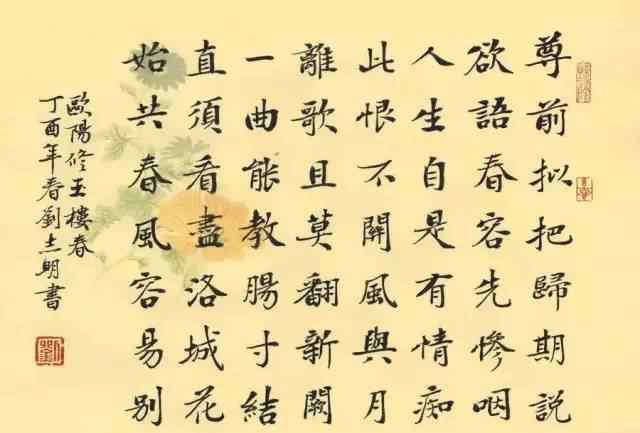 尊前拟把歸期説
欲語春容先慘咽
人生自是有情痴
此恨不關風與月
離歌且莫翻新闋
一曲能教腸寸結
直須看盡洛城花
始共春風容易別
歐陽修玉樓春
丁酉年春劉志明書